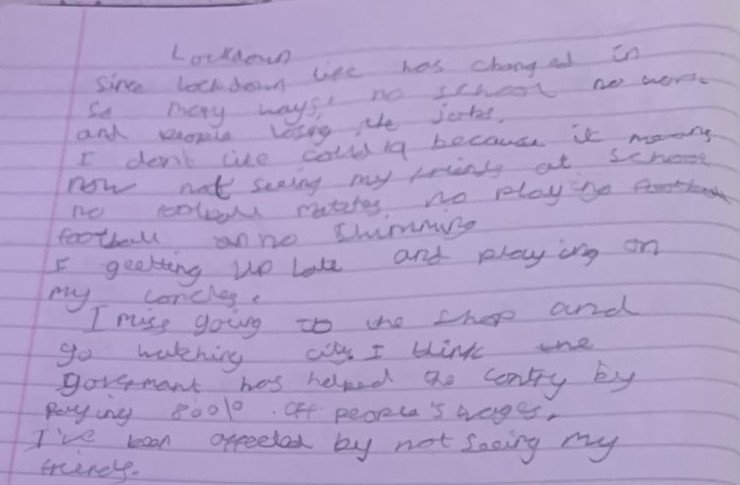 Lockdown
Since lockdown life has changed in
so many ways, no school no work
and people losing the jobs.
I don't like covid 19 because it means
now not seeing my friends at school
no football matches, no playing
football an no swimming
I geetting up late and playing on
my concles.
I miss going to the shop and
go watching city. I think the
goverment has helped the contry by
paying 800% off people's wages.
I've been affected by not seeing my
friends.